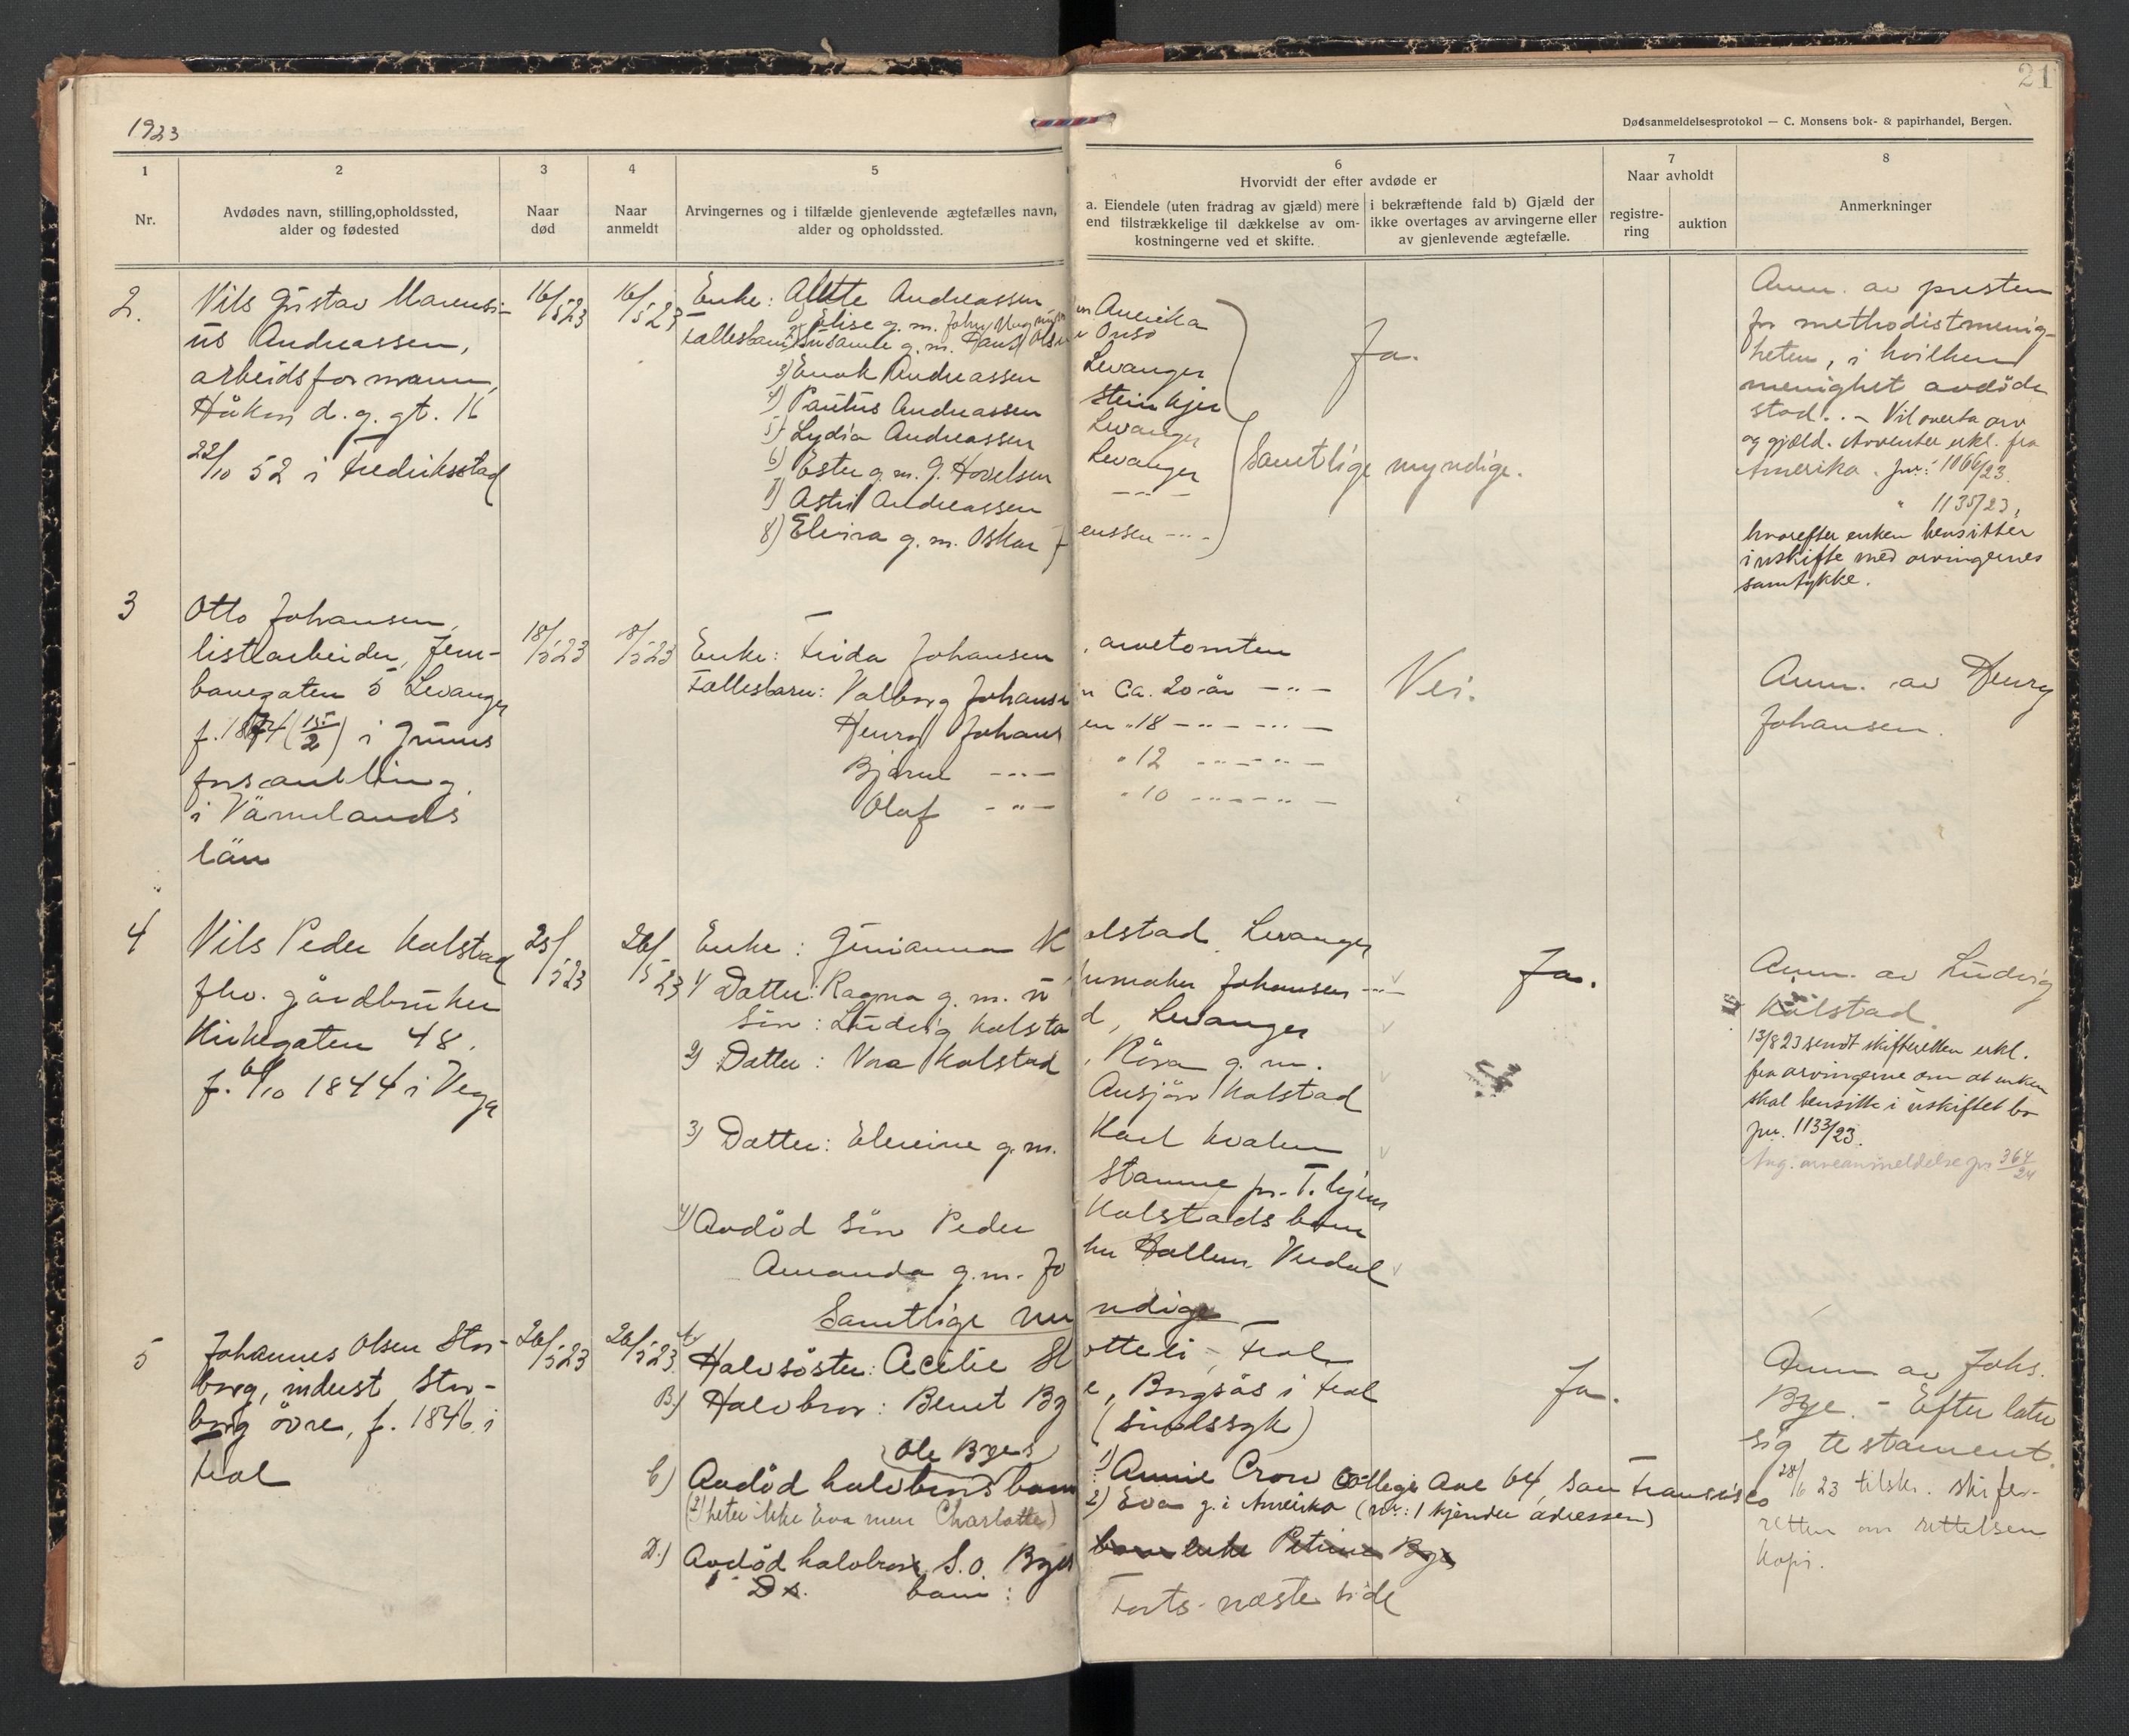 21
1923
Dødsanmeldelsesprotokol — C. Monsens bok- & papirhandel, Bergen.
1
Nr.
2
Avdødes navn, stilling, opholdssted,
alder og fødested
3
Naar
død
4
Naar
anmeldt
5
Arvingernes og i tilfælde gjenlevende ægtefælles navn,
alder og opholdssted.
6
Hvorvidt der efter avdøde er
a. Eiendele (uten fradrag av gjæld) mere
end tilstrækkelige til dækkelse av om-
kostningerne ved et skifte.
i bekræftende fald b) Gjæld der
ikke overtages av arvingerne eller
av gjenlevende ægtefælle.
7
Naar avholdt
registre-
ring
auktion
8
Anmerkninger
2.
Nils Gustav Marensi-
us Andreassen,
arbeidsformann,
Håkon d. g. gt. 16
22/10 52 i Fredriksstad
16/5 23
16/5 23
Enke: Alette Andreassen
Fællesbarn: 1) Elise g. m. John
Amerika
2) g. m. Hans Olsen Onsø
3) Enok Andreassen Levanger
4) Paulus Andreassen Steinkjer
5) Lydia Andreassen Levanger
6) Ester g. m. G. Hovelsen Levanger
7) Astrid Andreassen —"—
8) Elvira g. m. Oskar Jenssen —"—
Ja.
Samtlige myndige.
Anm. av presten
for methodistmenig-
heten, i hvilken
menighet avdöde
stod. . – Vil overta arv
og gjæld. Avventer erkl. fra
Amerika. Jnr: 1066/23.
" 1135/23,
hvorefter enken hensitter
i uskifte med arvingernes
samtykke.
3
Otto Johansen,
listearbeider, Jern-
banegaten 5 Levanger
f. 1874 (15/2) i Grums
forsamling
i Värmlands
län
18/5 23
18/5 23
Enke: Frida Johansen, arvetomten
Fællesbarn: Valborg Johansen ca. 20 år —"—
Henry Johansen " 18 —"— —"—
Bjarne —"— " 12 —"— —"—
Olaf —"— " 10 —"— —"—
Nei.
Anm. av Henry
Johansen.
4
Nils Peder Kolstad
fhv. gårdbruker
Kirkegaten 48.
f. 6/10 1844 i Vega
25/5 23
26/5 23
Enke: Gurianna Kolstad, Levanger
1) Datter: Ragna g. m. urmaker Johansen —"—
Sön: Ludvig Kolstad, Levanger
2) Datter: Nora Kolstad, Röra g. m.
Ansjön Kolstad
3) Datter: g. m. Karl Kvalen
Stamne pr. T. hjem
4) Avdöd sön Peder Kolstads barn
Amanda g. m. John Hallem, Verdal
Samtlige myndige
Ja.
Anm. av Ludvig
Kolstad.
13/8 23 sendt skifteretten erkl.
fra arvingerne om at enken
skal hensitte i uskiftet bo
jnr. 1133/23.
Ang. arveanmeldelse jnr 364/24
5
Johannes Olsen Stor-
borg, inderst Stor-
borg övre, f. 1846 i
Frol
26/5 23
26/5 23.
A.) Halvsöster: Cecilie Slotteli, Frol
B.) Halvbror: Benet Bye, Borgsås i Frol
(sindssyk)
(Ole Byes)
C.) Avdöd halvbrors barn: 1) Annie Crow College Ave 64, San Fransisco
2) Eva g. i Amerika (nr: 1 kjender adressen)
(2) heter ikke Eva men Charlotte)
D.) Avdöd halvbror S. O. Byes barn enke Petrine Bye
D. barn:
Forts. næste side
Ja.
Anm av Johs.
Bye. – Efterlater
sig testament.
28/6 23 tilskr. skifte-
retten om rettelsen
Kopi.